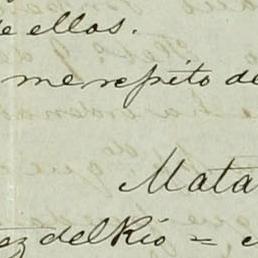 de ellos.
me repito de
Mata
ez del Rio =